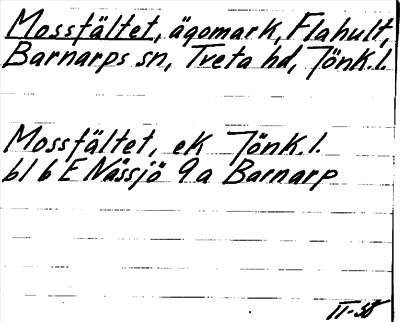 Mossfältet, ägomark, Flahult,
Barnarps sn, Tveta hd, Jönk.l.
Mossfältet, ek Jönk.l.
bl 6 E Nässjö 9a Barnarp